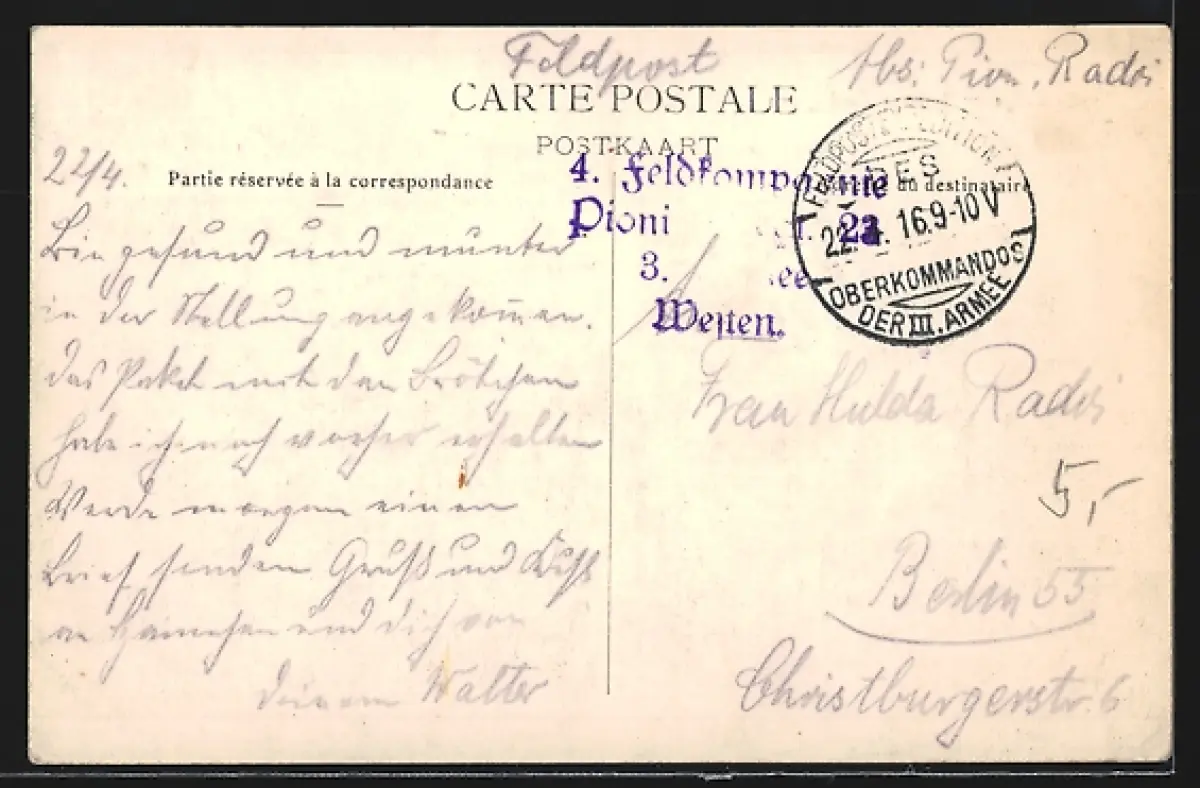 Feldpost
Abs: Pion. Radri
CARTE POSTALE
POSTKAART
22/4.
Partie réservée à la correspondance
au destinataire
4. Feldkompagnie
Pioni 23
3. ee
Westen.
DES
22.4.16 9-10 V
OBERKOMMANDOS
DER III. ARMEE
Bin gesund und munter
in der Stellung angekommen.
Das Paket mit den Brötchen
habe ich noch vorher erhalten
Werde morgen einen
Brief senden Gruß und Kuß
an Hännchen und dich von
deinem Walter
Frau Hulda
5,-
Berlin 55
Christburgerstr. 6